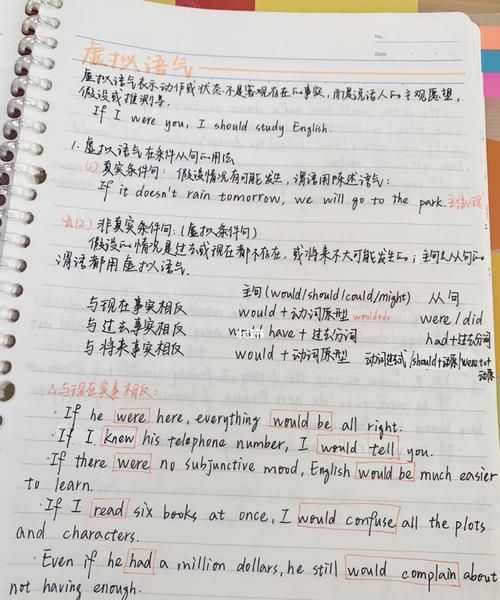 No.
Date
虚拟语气
虚拟语气表示动作或状态不是客观存在的事实,而是说话人的主观愿望,
假设或推测等.
If I were you, I should study English.
1. 虚拟语气在条件从句的用法
(1) 真实条件句: 假设情况有可能发生,谓语用陈述语气:
If it doesn't rain tomorrow, we will go to the park.
☆(2) 非真实条件句:(虚拟条件句)
假设的情况是过去或现在都不存在,或将来不大可能发生的;主句&从句的
谓语都用虚拟语气.
主句(would/should/could/might) 从句
与现在事实相反 would+动词原型 would+do were/did
与过去事实相反 would have+过去分词 had+过去分词
与将来事实相反 would+动词原型 动词过去式/should+动原/were to+
动原
△与现在实事相反:
·If he were here, everything would be all right.
·If I knew his telephone number, I would tell you.
·If there were no subjunctive mood, English would be much easier
to learn.
·If I read six books at once, I would confuse all the plots
and characters.
·Even if he had a million dollars, he still would complain about
not having enough.